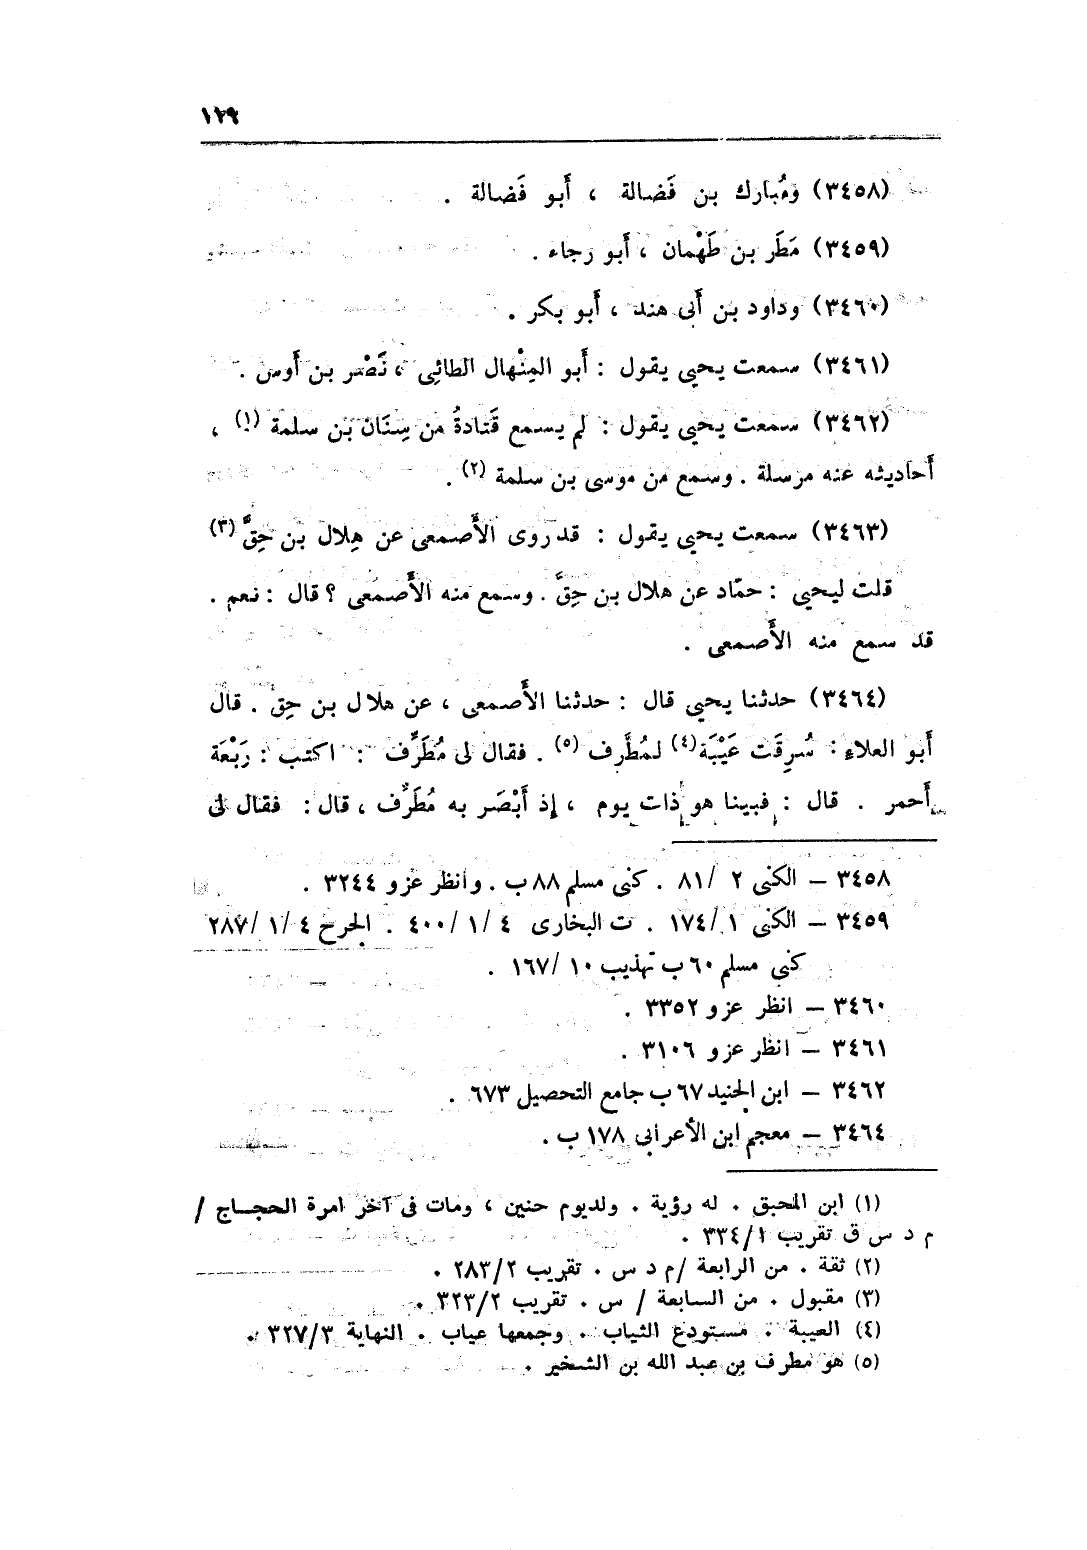 ١٢٩
(٣٤٥٨) ومُبارك بن فَضالة ، أَبو فَضالة .
(٣٤٥٩) مَطَر بن طَهْمان ، أَبو رجاء .
(٣٤٦٠) وداود بن أَبى هند ، أَبو بكر .
(٣٤٦١) سمعت يحيى يقول : أَبو المِنْهال الطائِى ، نَصْر بن أَوس .
(٣٤٦٢) سمعت يحيى يقول : لم يسمع قَتادةُ من سِنَان بن سلمة (١) ،
أَحاديثه عنه مرسلة . وسمع من موسى بن سلمة (٢) .
(٣٤٦٣) سمعت يحيى يقول : قد روى الأَصمعى عن هِلال بن حِقٍّ (٣)
قلت ليحيى : حمّاد عن هلال بن حِقَّ . وسمع منه الأَصمَعى ؟ قال : نعم .
قد سمع منه الأَصمعى .
(٣٤٦٤) حدثنا يحيى قال : حدثنا الأَصمعى ، عن هلال بن حِق . قال
أَبو العلاءِ : سُرِقَت عَيْبَة(٤) لمُطَّرِف (٥) . فقال لى مُطَرِّف : اكتب : رَبْعَة
أَحمر . قال : فبينا هو ذات يوم ، إِذ أَبْصَر به مُطَرِّف ، قال : فقال لى
٣٤٥٨ – الكنى ٢ /٨١ . كنى مسلم ٨٨ ب . وانظر عزو ٣٢٤٤ .
٣٤٥٩ – الكنى ١ /١٧٤ . ت البخارى ٤ /١ /٤٠٠ . الجرح ٤ /١ /٢٨٧
كنى مسلم ٦٠ ب تهذيب ١٠ /١٦٧ .
٣٤٦٠ – انظر عزو ٣٣٥٢ .
٣٤٦١ – انظر عزو ٣١٠٦ .
٣٤٦٢ – ابن الجنيد ٦٧ ب جامع التحصيل ٦٧٣ .
٣٤٦٤ – معجم ابن الأعرابى ١٧٨ ب .
(١) ابن المحبق . له رؤية . ولديوم حنين ، ومات فى آخر امرة الحجاج /
م د س ق تقريب ١/٣٣٤ .
(٢) ثقة . من الرابعة /م د س . تقريب ٢/٢٨٣ .
(٣) مقبول . من السابعة / س . تقريب ٢/٣٢٣ .
(٤) العيبة . مستودع الثياب . وجمعها عياب . النهاية ٣/٣٢٧ .
(٥) هو مطرف بن عبد الله بن الشخير .